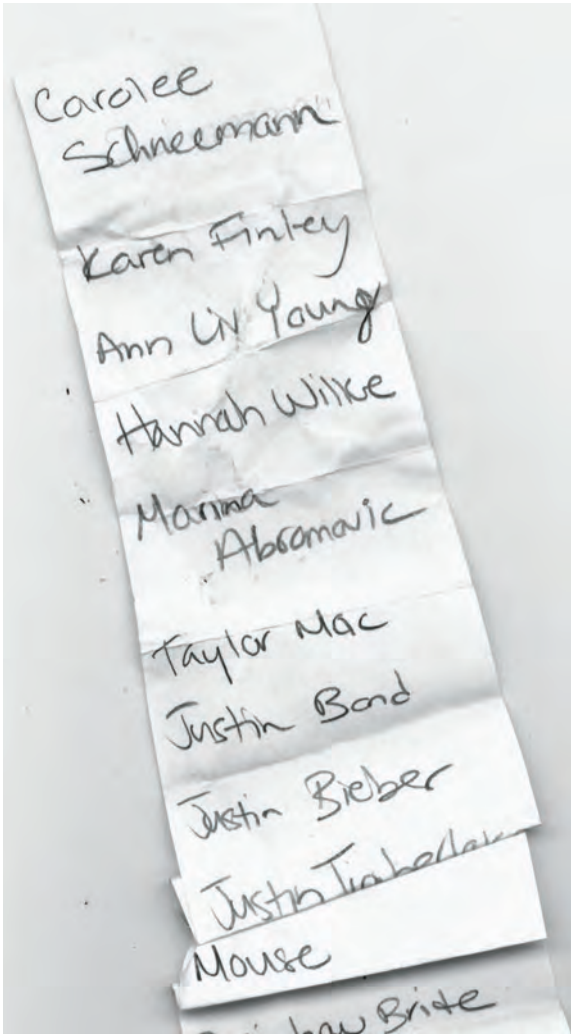 Carolee
Schneemann
Karen Finley
Ann Liv Young
Hannah Wilke
Marina
Abromavic
Taylor Mac
Justin Bond
Justin Bieber
Justin Timberlake
Mouse
Brite